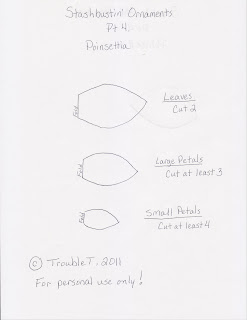 Stashbustin' Ornaments
Pt 4
Poinsettia
Fold
Leaves
Cut 2
Fold
Large Petals
Cut at least 3
Fold
Small Petals
Cut at least 4
© TroubleT. 2011
For personal use only!